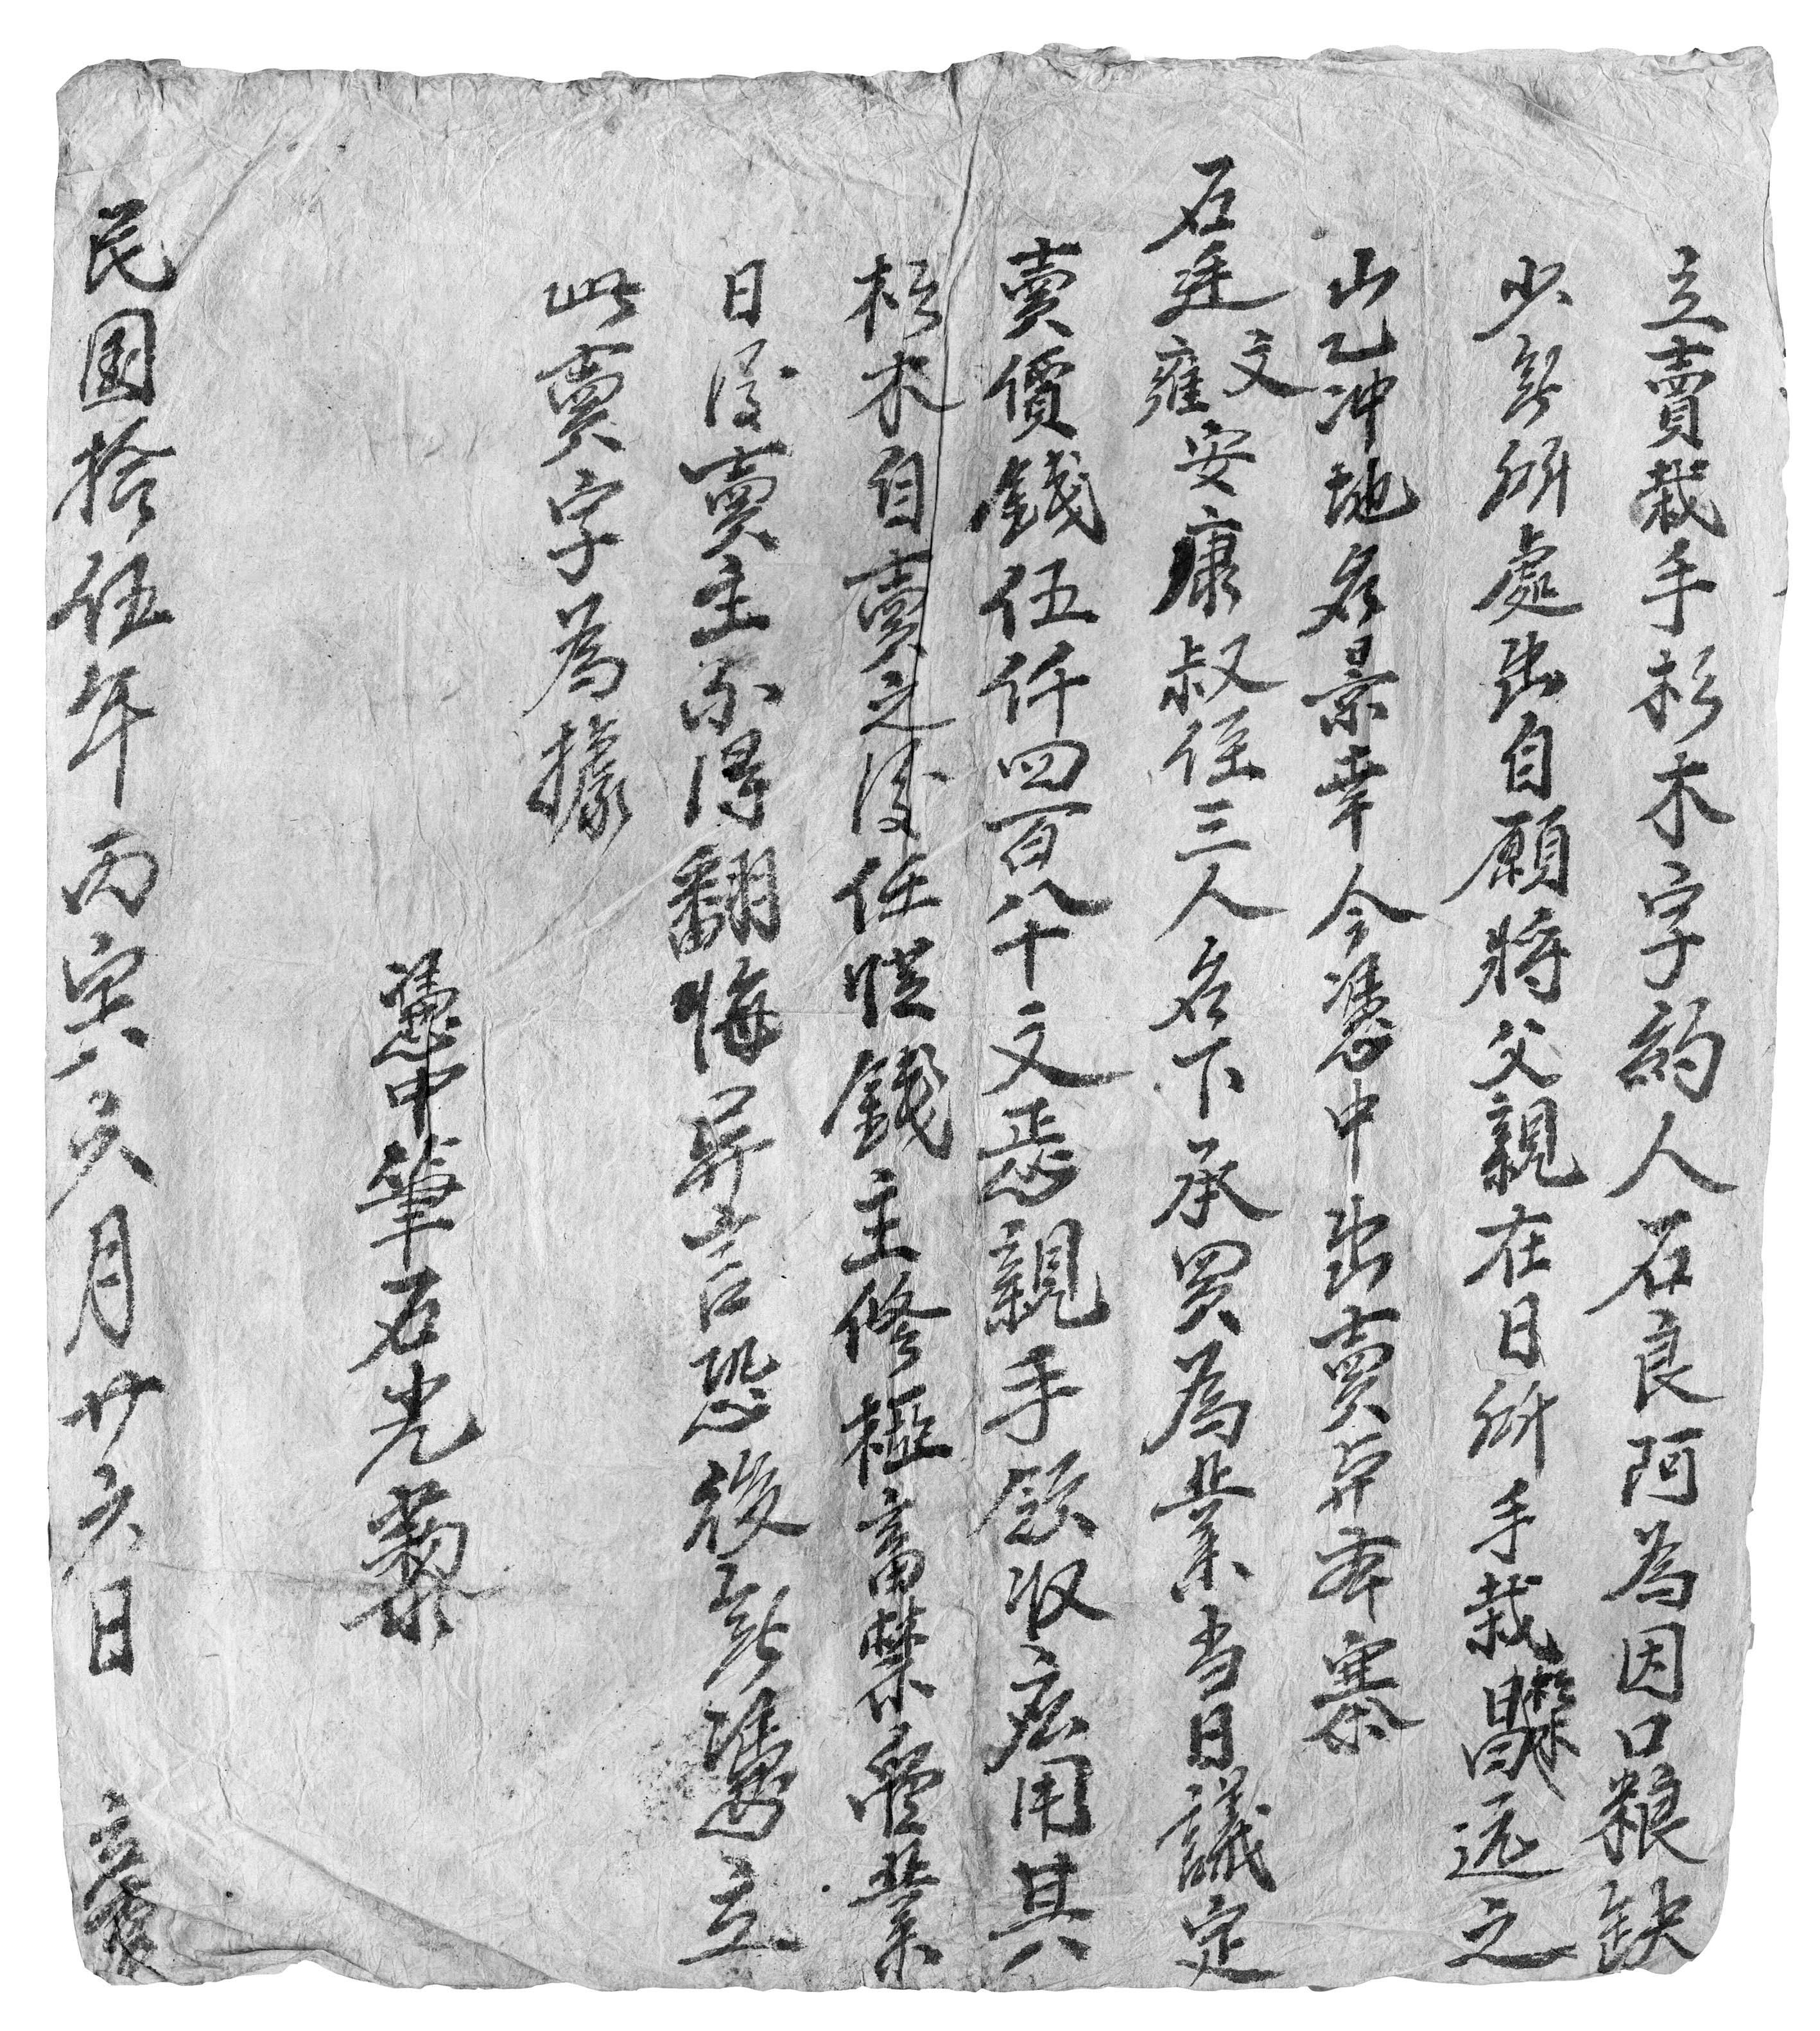 立賣栽手杉木字約人石良阿為因口粮缺
少無所處出自願將父親在日所手栽遠之
山乙冲地名景幸今憑中出賣与本寨
石廷文雍安康叔侄三人名下承買為業当日議定
賣價錢伍仟四百八十文恁親手領收應用其
杉木自賣之後任從錢主修極畜禁管業
日後賣主不得翻悔異言恐後無憑立
此賣字為據
憑中筆石光黎
民国拾伍年丙寅六月廿六日 立